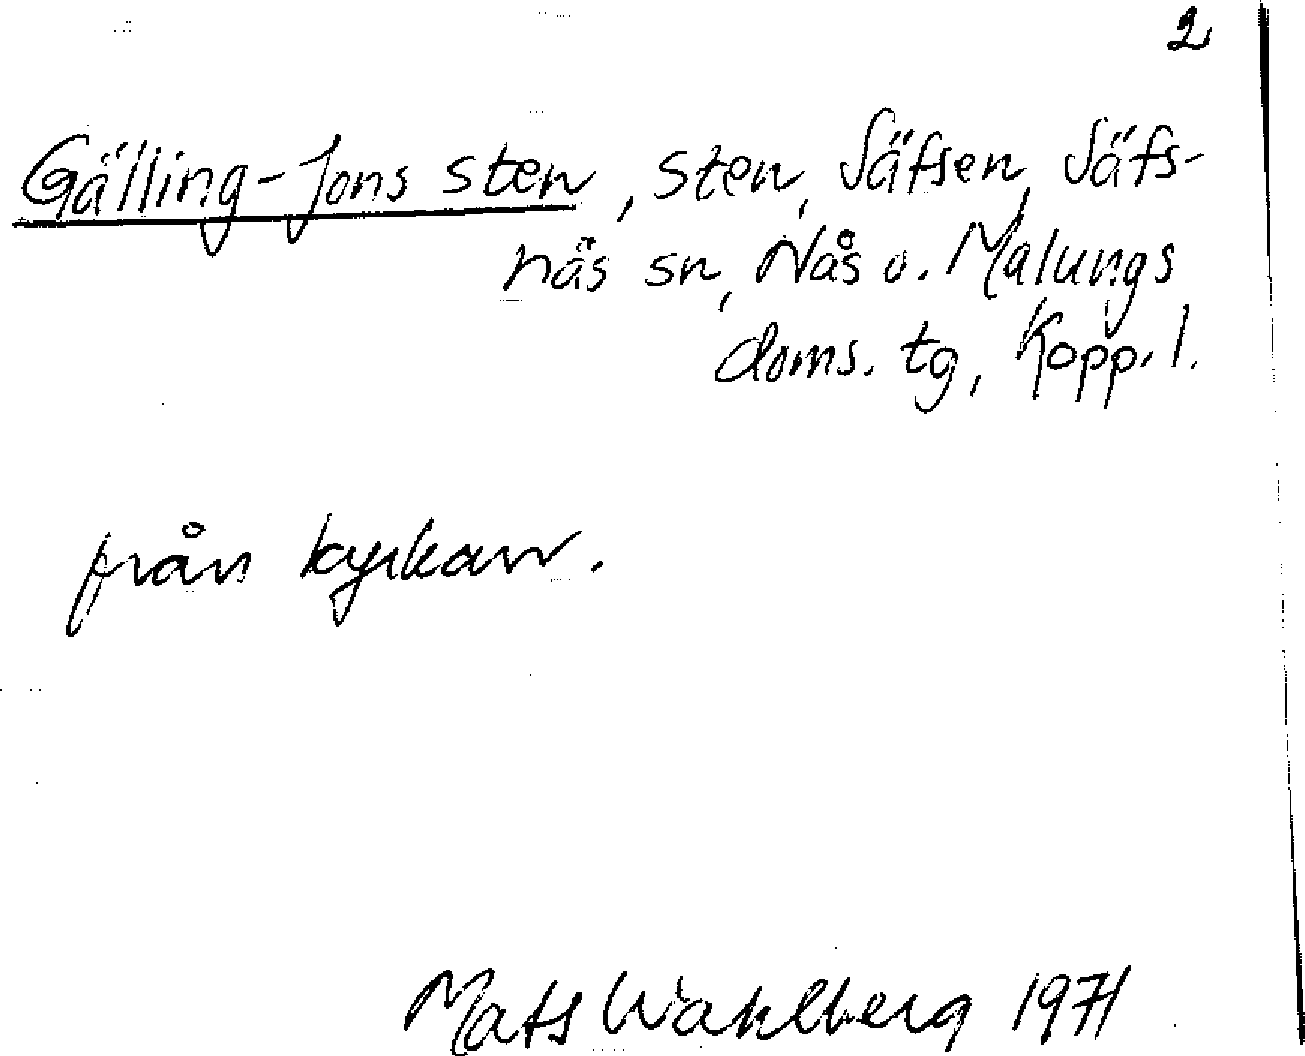 2
Gälling-Jons sten, sten, Säfsen, Säfs-
näs sn, Nås o. Malungs
doms. tg, Kopp. l.
från kyrkan.
Mats Wahlberg 1971